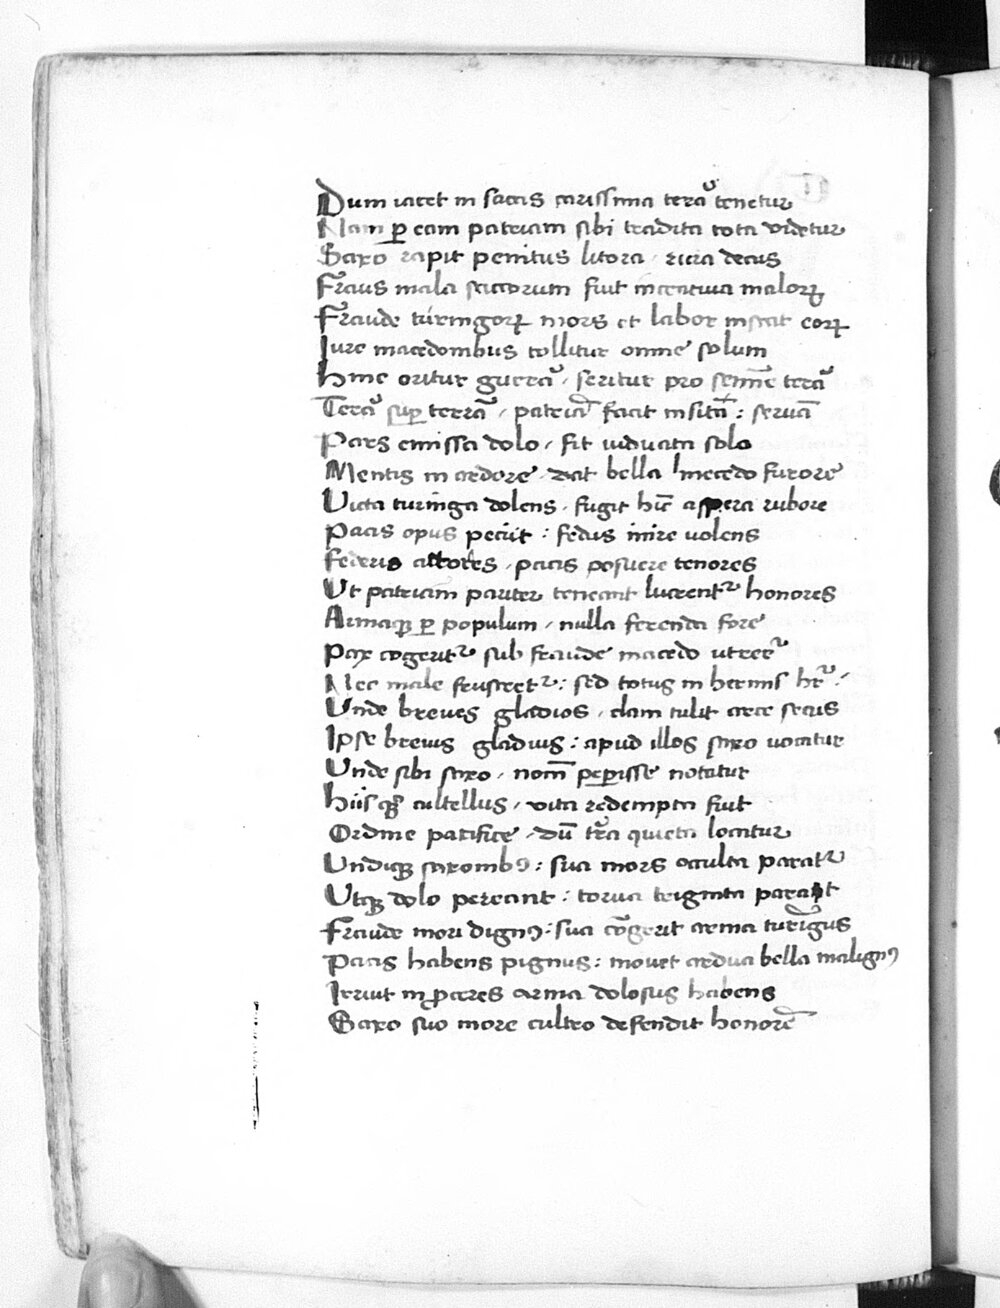 Dum iacet in saccis carissima terra tenetur
Nam ꝑ eam patriam sibi tradita tota videtur
Saxo rapit penitus litora, rura decus
Fraus mala saccorum fuit incentiua maloꝝ
Fraude turingoꝝ mors et labor instat eoꝝ
Jure macedonibus tollitur omne solum
Hinc oritur guerra, seritur pro semīe terra
Terra suꝑ terrā, patriā facit insitā: seruā
Pars emissa dolo, fit viduata solo
Mentis in ardore, dat bella macedo furore
Victa turinga dolens, fugit hīc aspera rubore
Pacis opus peciit: fedus inire uolens
Federis actores, pacis posuere tenores
Ut patriam pariter teneant lucrentʳ honores
Armaqꝫ ꝑ populum, nulla ferenda fore
Pax cogeritʳ sub fraude macedo
Nec male: sed totus in hermis
Unde breues gladios, clam tulit arce secus
Ipse breuis gladius: apud illos saxo uocatur
Unde sibi saxo, nomē peꝑisse notatur
Hiis qꝫ cultellus, vita redempta fuit
Ordine pacifice, dū tr̄a quieta locatur
Undiqꝫ saxonibꝰ: sua mors occulta paratʳ
Utqꝫ dolo pereant: torua triginta parant
Fraude mori dignꝰ: sua cōgerit arma turīgus
Pacis habens pignus: mouet ardua bella malignꝰ
Irruit in ꝓceres arma dolosus habens
Saxo suo more cultro defendit honorē